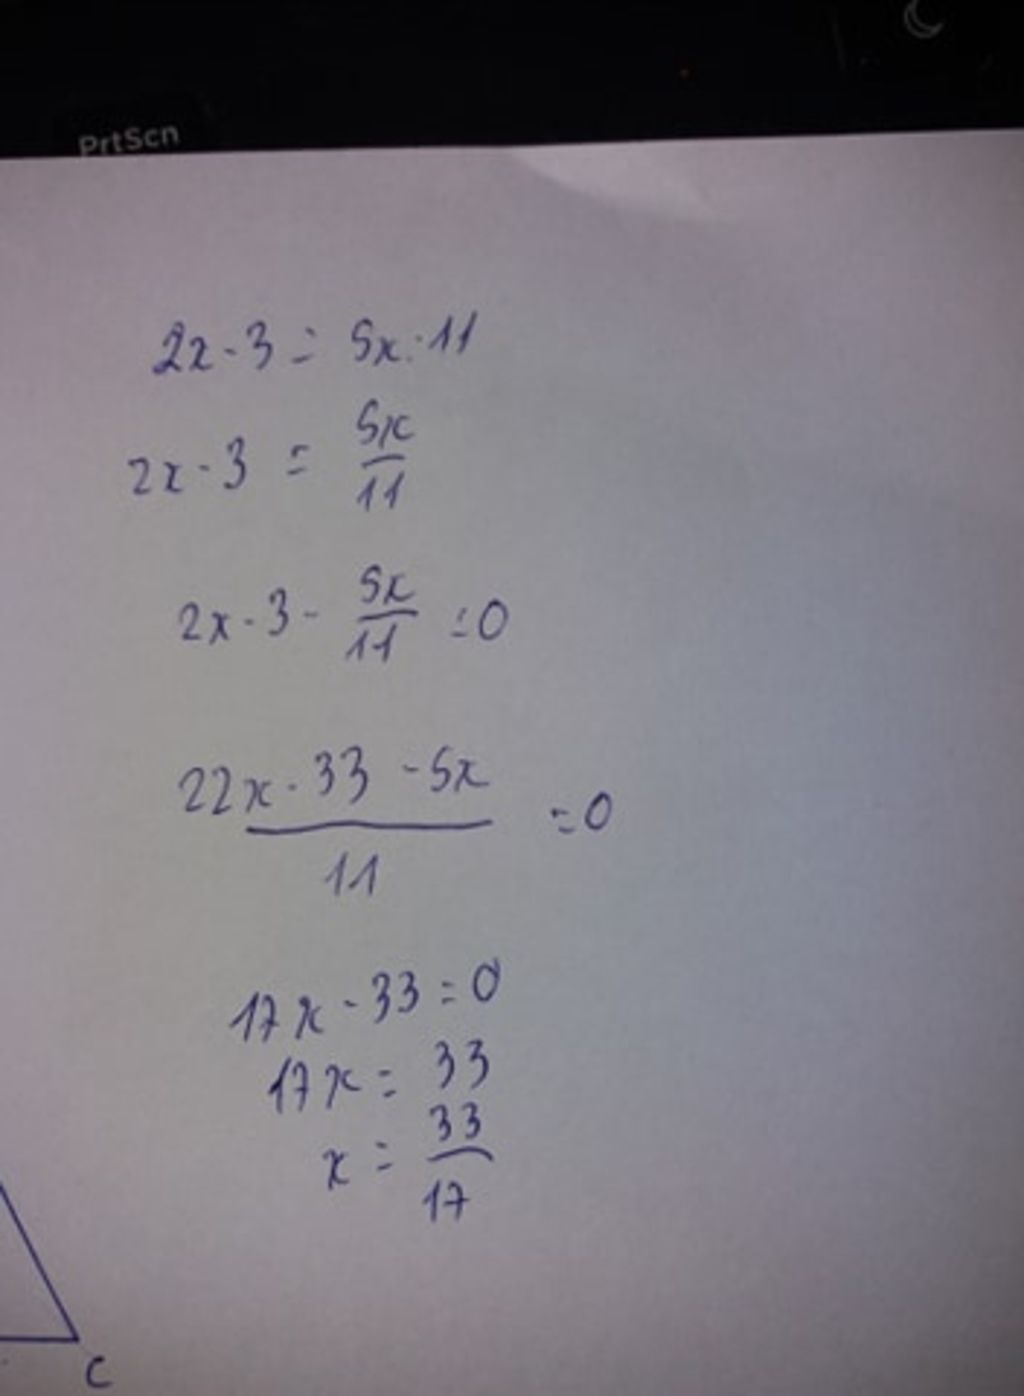 PrtScn
2x - 3 = 5x : 11
2x - 3 = 5x/11
2x - 3 - 5x/11 = 0
22x - 33 - 5x/11 = 0
17x - 33 = 0
17x = 33
x = 33/17
C